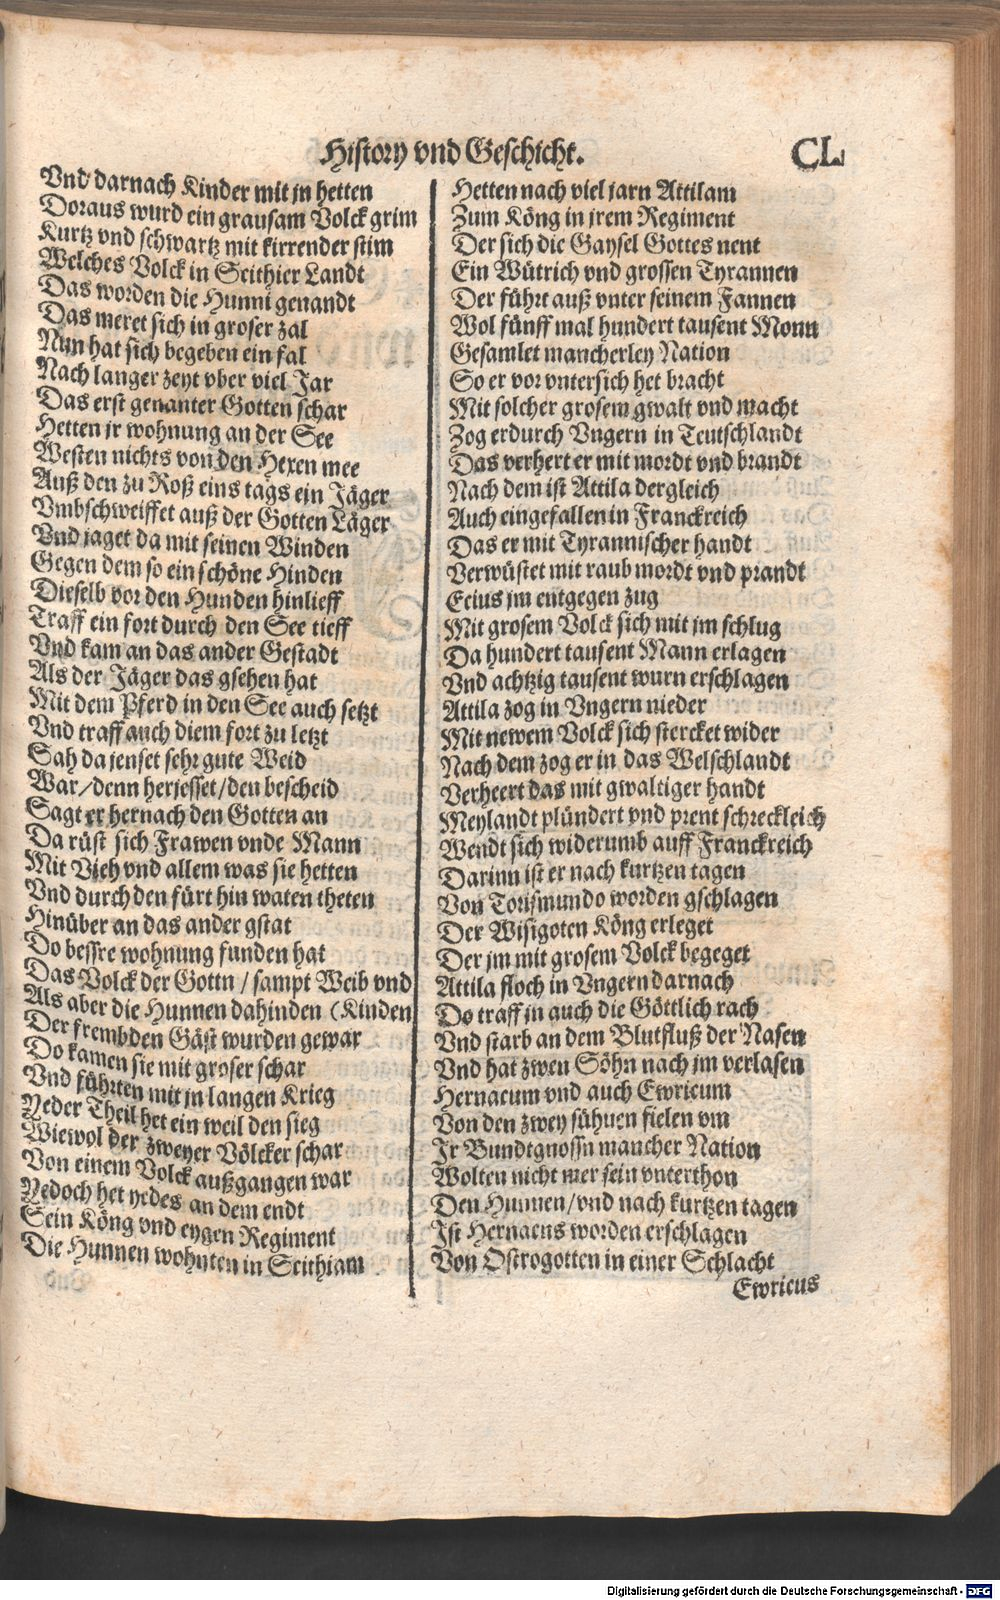 History vnd Geschicht.
CL
Vnd darnach Kinder mit jn hetten
Doraus wurd ein grausam Volck grim
Kurtz vnd schwartz mit kirrender stim
Welches Volck in Scithier Landt
Das worden die Hunni genandt
Das meret sich in groser zal
Nun hat sich begeben ein fal
Nach langer zeyt vber viel Jar
Das erst genanter Gotten schar
Hetten jr wohnung an der See
Westen nichts von den Hexen mee
Auß den zu Roß eins tags ein Jäger
Vmbschweiffet auß der Gotten Läger
Vnd jaget da mit seinen Winden
Gegen dem so ein schöne Hinden
Dieselb vor den Hunden hinlieff
Traff ein fort durch den See tieff
Vnd kam an das ander Gestadt
Als der Jäger das gsehen hat
Mit dem Pferd in den See auch setzt
Vnd traff auch diem fort zu letzt
Sah da jenset sehr gute Weid
War/denn herjesset/den bescheid
Sagt er hernach den Gotten an
Da rüst sich Frawen vnde Mann
Mit Vieh vnd allem was sie hetten
Vnd durch den fürt hin waten theten
Hinüber an das ander gstat
Do bessre wohnung funden hat
Das Volck der Gottn / sampt Weib vnd
Als aber die Hunnen dahinden (Kinden
Der frembden Gäst wurden gewar
Do kamen sie mit groser schar
Vnd führten mit jn langen Krieg
Yeder Theil het ein weil den sieg
Wiewol der zweyer Völcker schar
Von einem Volck außgangen war
Yedoch het yedes an dem endt
Sein Köng vnd eygen Regiment
Die Hunnen wohnten in Scithiam
Hetten nach viel jarn Attilam
Zum Köng in jrem Regiment
Der sich die Gaysel Gottes nent
Ein Wütrich vnd grossen Tyrannen
Der führt auß vnter seinem Fannen
Wol fünff mal hundert tausent Monn
Gesamlet mancherley Nation
So er vor vntersich het bracht
Mit solcher grosem gwalt vnd macht
Zog er durch Vngern in Teutschlandt
Das verhert er mit mordt vnd brandt
Nach dem ist Attila dergleich
Auch eingefallen in Franckreich
Das er mit Tyrannischer handt
Verwüstet mit raub mordt vnd prandt
Ecius jm entgegen zug
Mit grosem Volck sich mit jm schlug
Da hundert tausent Mann erlagen
Vnd achtzig tausent wurn erschlagen
Attila zog in Vngern nieder
Mit newem Volck sich stercket wider
Nach dem zog er in das Welschlandt
Verheert das mit gwaltiger handt
Meylandt plündert vnd prent schrecklеich
Wendt sich widerumb auff Franckreich
Darinn ist er nach kurtzen tagen
Von Torismundo worden gschlagen
Der Wisigoten Köng erleget
Der jm mit grosem Volck begeget
Attila floch in Vngern darnach
Do traff jn auch die Göttlich rach
Vnd starb an dem Blutfluß der Nasen
Vnd hat zwen Söhn nach jm verlasen
Hernacum vnd auch Ewricum
Von den zwey sühuen fielen vm
Jr Bundtgnossn mancher Nation
Wolten nicht mer sein vnterthon
Den Hunnen/vnd nach kurtzen tagen
Ist Hernacus worden erschlagen
Von Ostrogotten in einer Schlacht
Ewricus
Digitalisierung gefördert durch die Deutsche Forschungsgemeinschaft - DFG